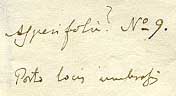 Asperifolia? No 9.
Porto locis umbrosis